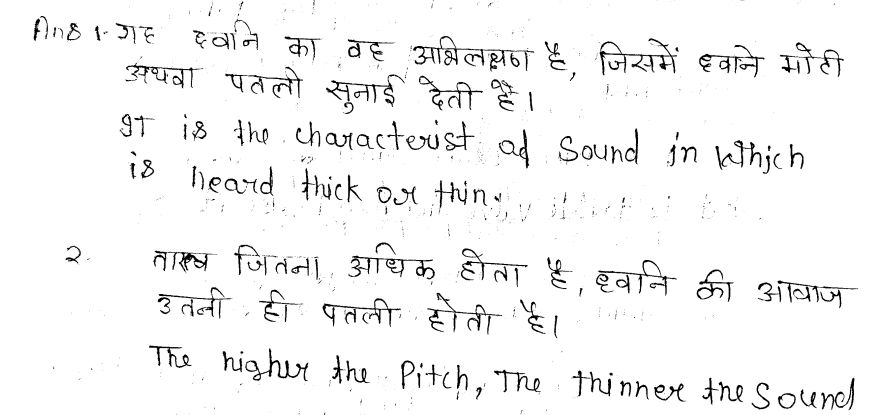 Ans 1. यह ध्वनि का वह अभिलक्षण है, जिसमें ध्वनि मोटी
अथवा पतली सुनाई देती है।
IT is the characterist ad Sound in which
is heard thick or thin.
2. तारत्व जितना अधिक होता है, ध्वनि की आवाज
उतनी ही पतली होती है।
The higher the Pitch, The thinner the Sound